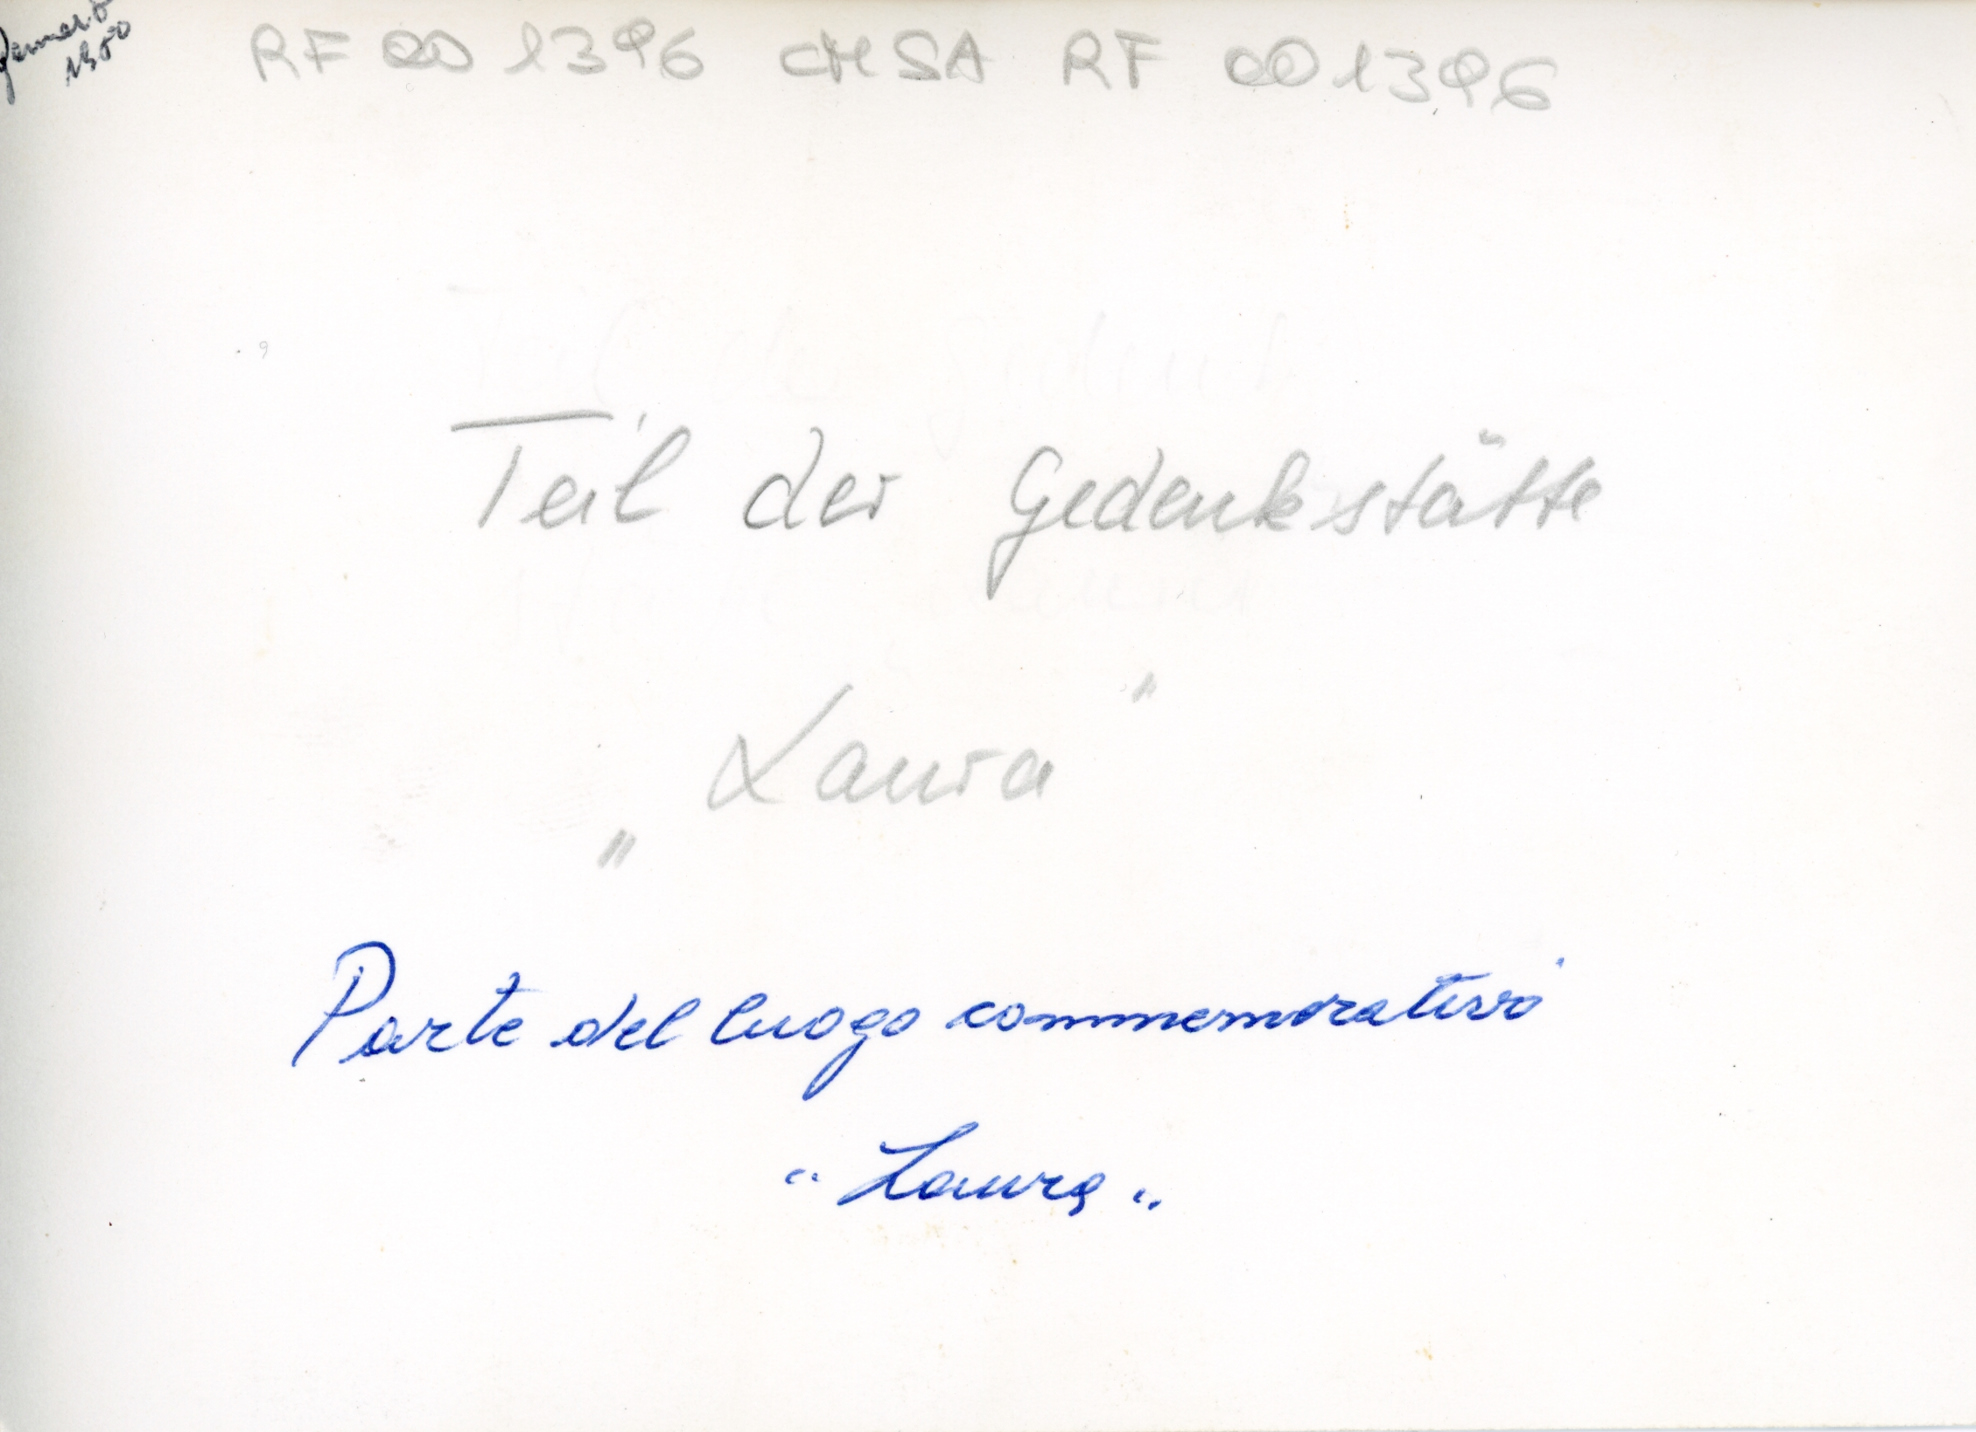 RF 001396 CHSA RF 001396
Teil der Gedenkstätte
„Laura"
Parte del luogo commemorativo
"Laura"